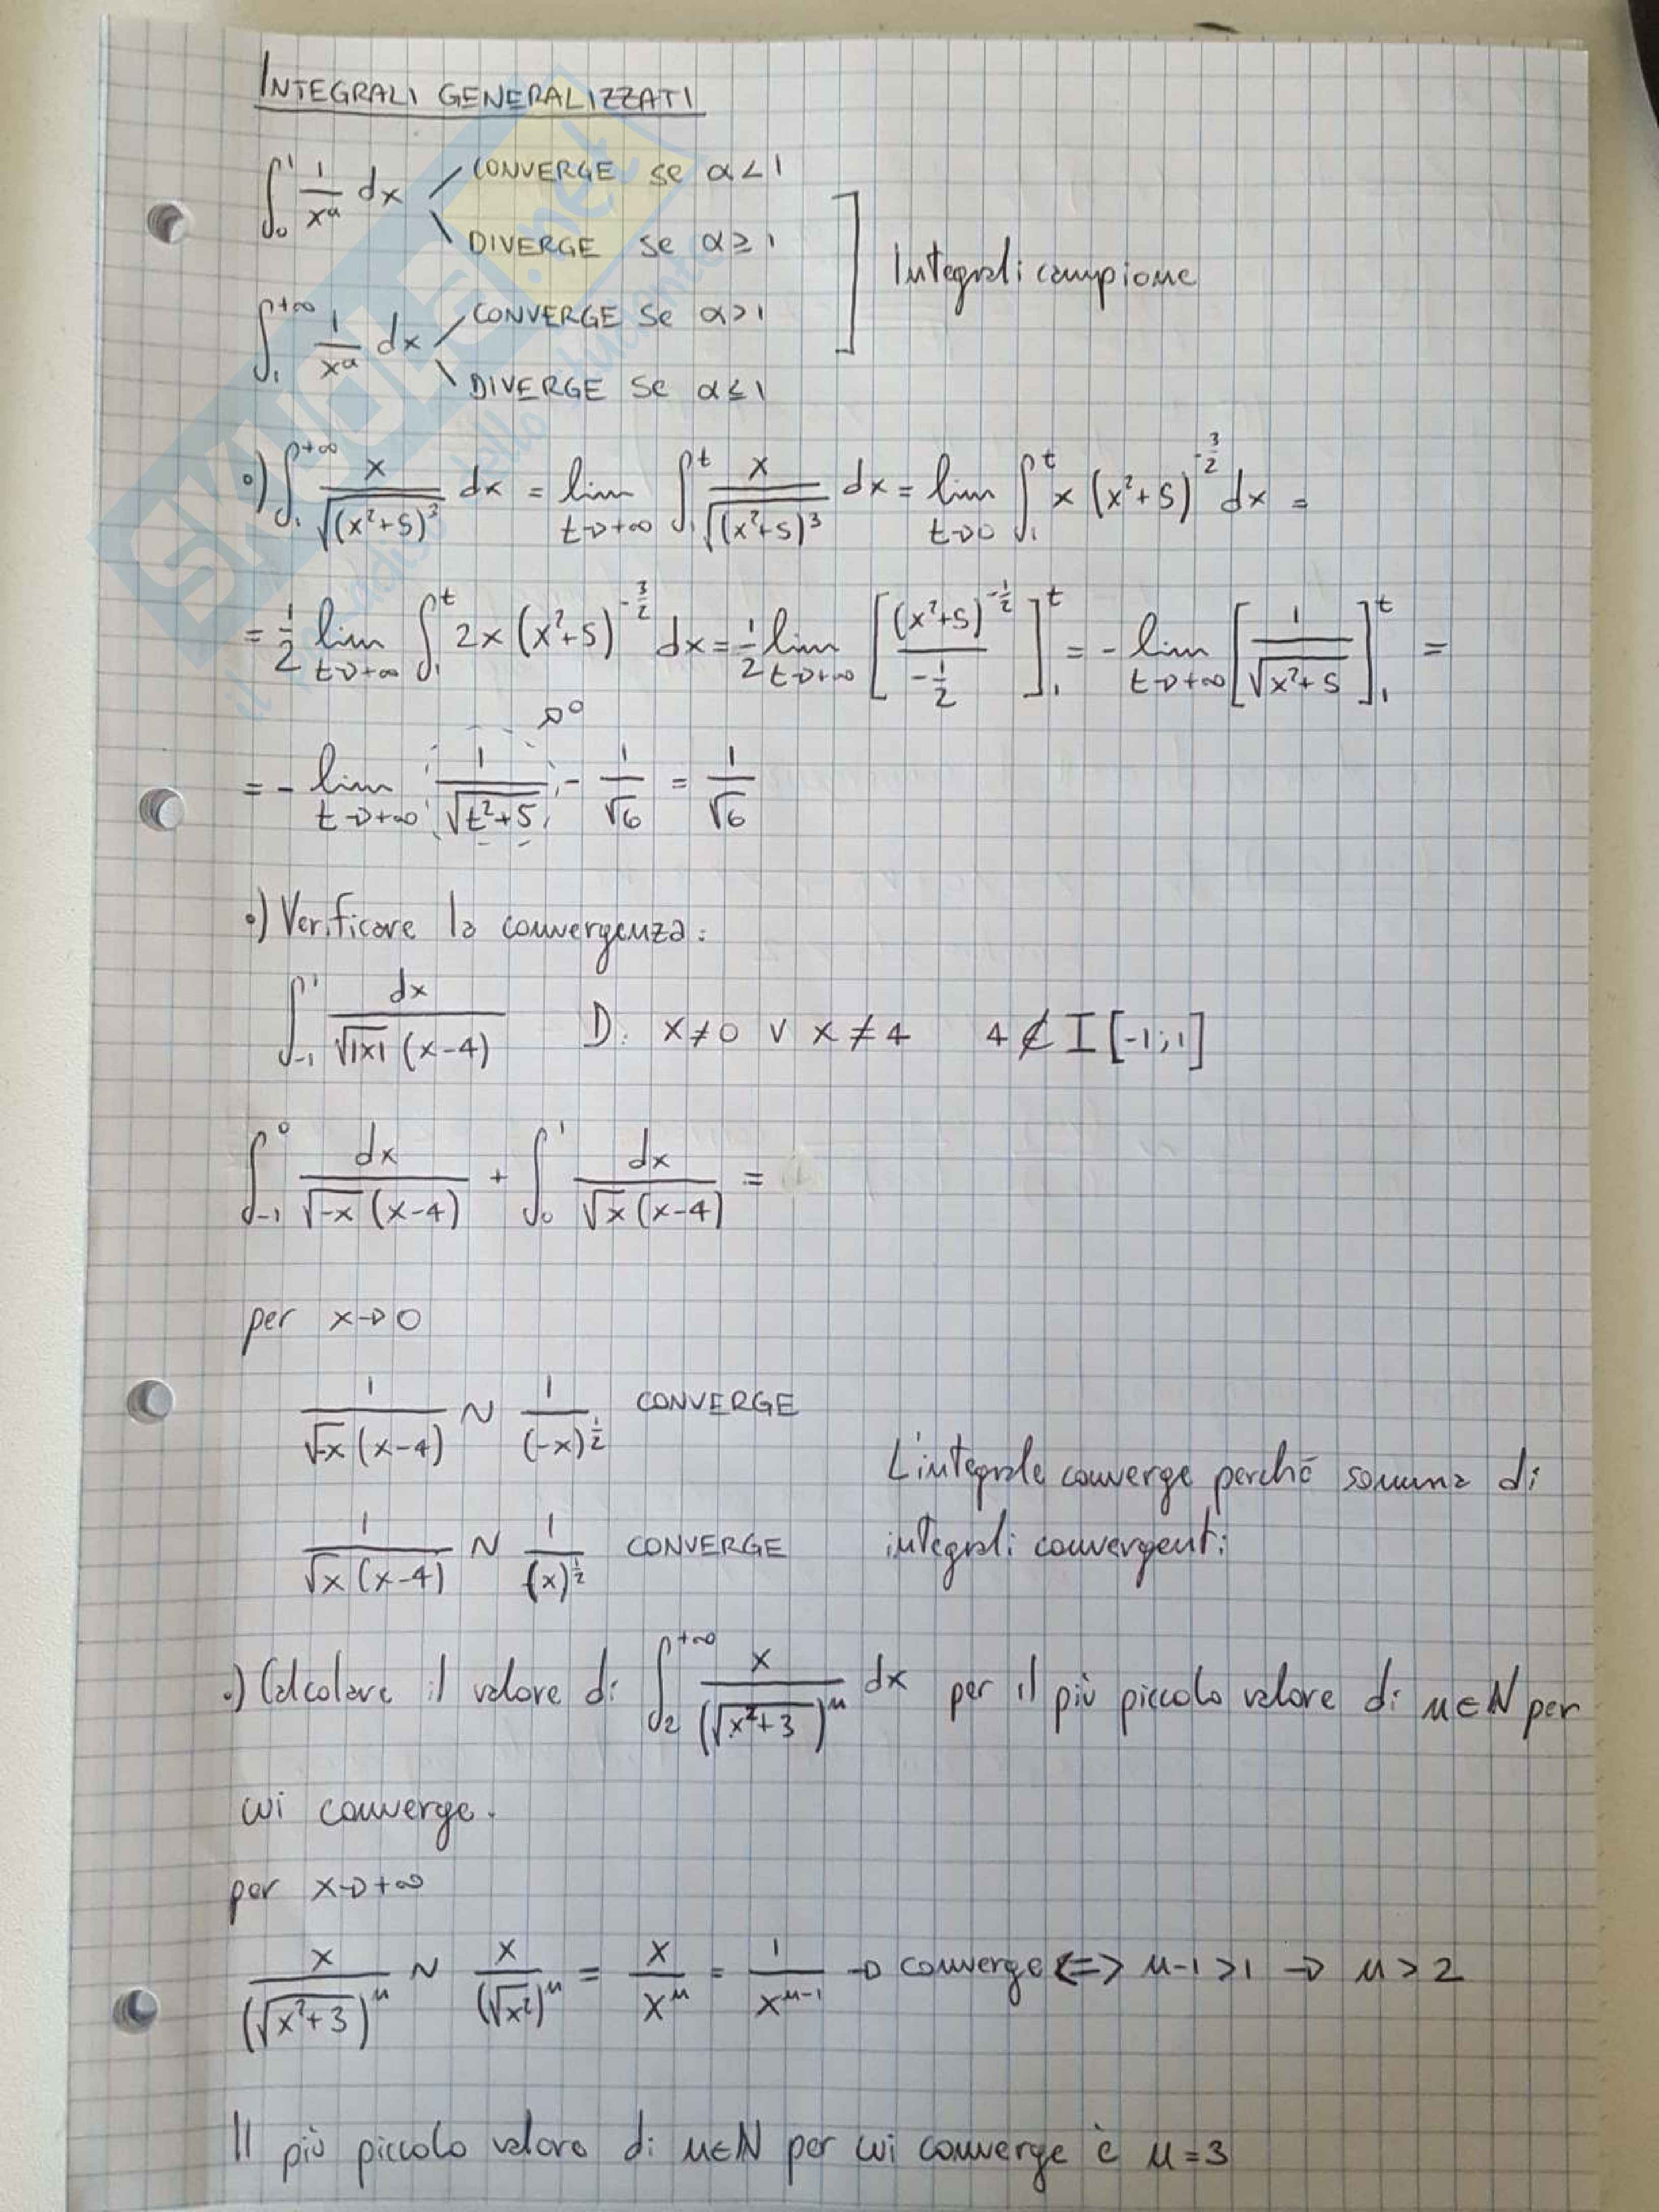 INTEGRALI GENERALIZZATI
∫₀¹ 1/x^α dx CONVERGE se α<1
DIVERGE se α≥1
Integrali campione
∫₁^{+∞} 1/x^α dx CONVERGE se α>1
DIVERGE se α≤1
•) ∫₁^{+∞} x/√((x²+5)³) dx = lim_{t→+∞} ∫₁^t x/√((x²+5)³) dx = lim_{t→0} ∫₁^t x (x²+5)^{-3/2} dx =
= 1/2 lim_{t→+∞} ∫₁^t 2x (x²+5)^{-3/2} dx = 1/2 lim_{t→+∞} [(x²+5)^{-1/2}/(-1/2)]₁^t = - lim_{t→+∞} [1/√(x²+5)]₁^t =
= - lim_{t→+∞} 1/√(t²+5) →0 - 1/√6 = 1/√6
•) Verificare la convergenza:
∫_{-1}^1 dx/(√|x| (x-4)) D: x≠0 ∨ x≠4 4∉I[-1;1]
∫_{-1}^0 dx/(√-x (x-4)) + ∫₀¹ dx/(√x (x-4)) =
per x→0
1/(√-x (x-4)) ~ 1/(-x)^{1/2} CONVERGE
L'integrale converge perché somma di
integrali convergenti
1/(√x (x-4)) ~ 1/(x)^{1/2} CONVERGE
•) Calcolare il valore di ∫₂^{+∞} x/(√(x²+3))^n dx per il più piccolo valore di n∈N per
cui converge.
per x→+∞
x/(√(x²+3))^n ~ x/(√x²)^n = x/x^n = 1/x^{n-1} → converge <=> n-1>1 → n>2
Il più piccolo valore di n∈N per cui converge è n=3
SKUOLA.net